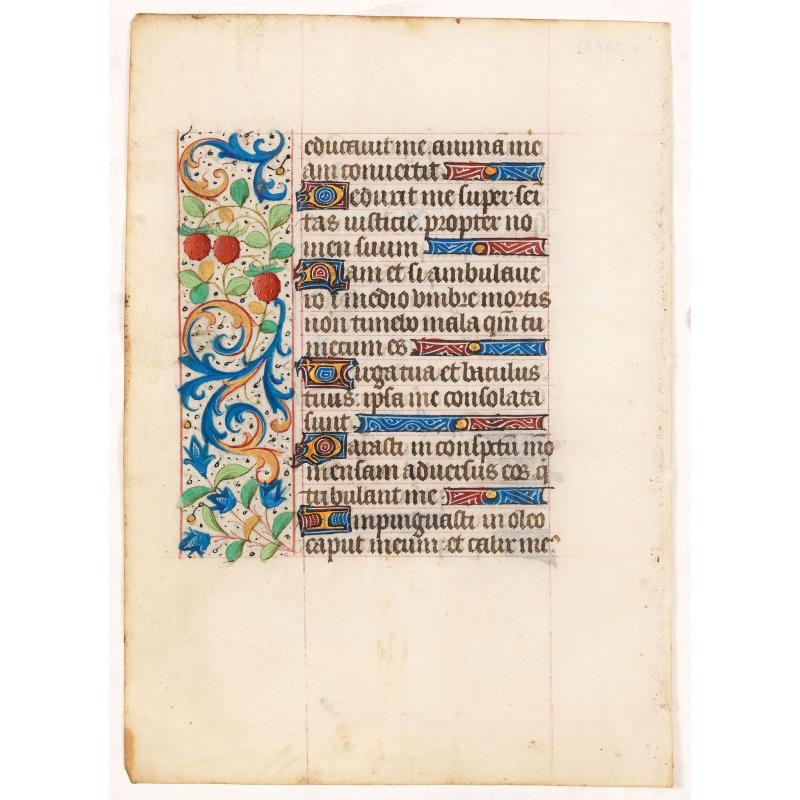 educauit me. anima me
am conuertit
Deduxit me super sei
tas iusticie. propter no
men suum
Nam et si ambulaue
ro ī medio vmbre mortis
non timebo mala qm̄ tu
mecum es
Uirga tua et baculus
tuus: ipsa me consolata
sunt
Parasti in consp̄tu mō
mensam aduersus eos. q̄
tribulant me
Impinguasti in oleo
caput meum: et calix me